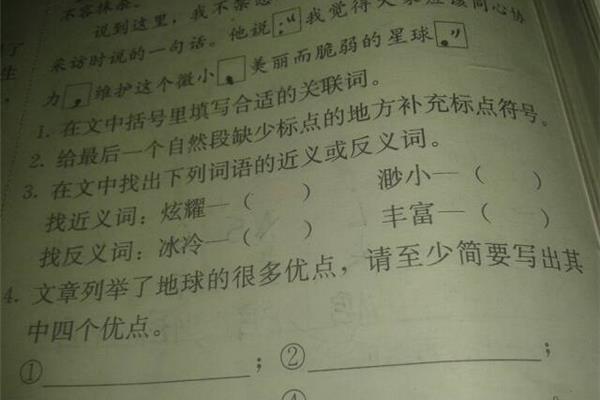 不容抹杀。
说到这里，我不禁
采访时说的一句话。他说：“我觉得大家应该同心协
力，维护这个微小、美丽而脆弱的星球。”
1. 在文中括号里填写合适的关联词。
2. 给最后一个自然段缺少标点的地方补充标点符号。
3. 在文中找出下列词语的近义或反义词。
找近义词：炫耀—（　　） 渺小—（　　）
找反义词：冰冷—（　　） 丰富—（　　）
4. 文章列举了地球的很多优点，请至少简要写出其
中四个优点。
①＿＿＿＿＿＿＿＿；②＿＿＿＿＿＿＿＿；